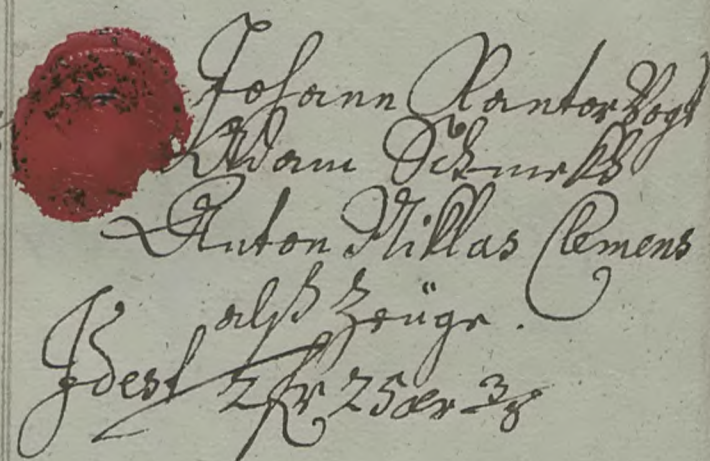 Johann Kantor Vogt
Adam Schmekh
Anton Niklas Clemens
alß Zeüge.
Idest 2 fr 25 xr 3/8